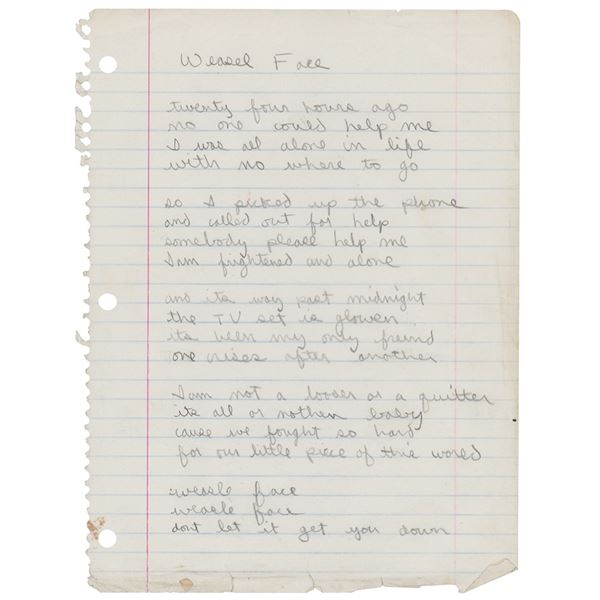 Weasel Face
twenty four hours ago
no one could help me
I was all alone in life
with no where to go
so I picked up the phone
and called out for help
somebody please help me
I am frightened and alone
and its way past midnight
the TV set is glowen
its been my only freind
one rises after another
I am not a looser or a quitter
its all or nothen baby
cause we fought so hard
for our little piece of this world
weasle face
weasle face
dont let it get you down